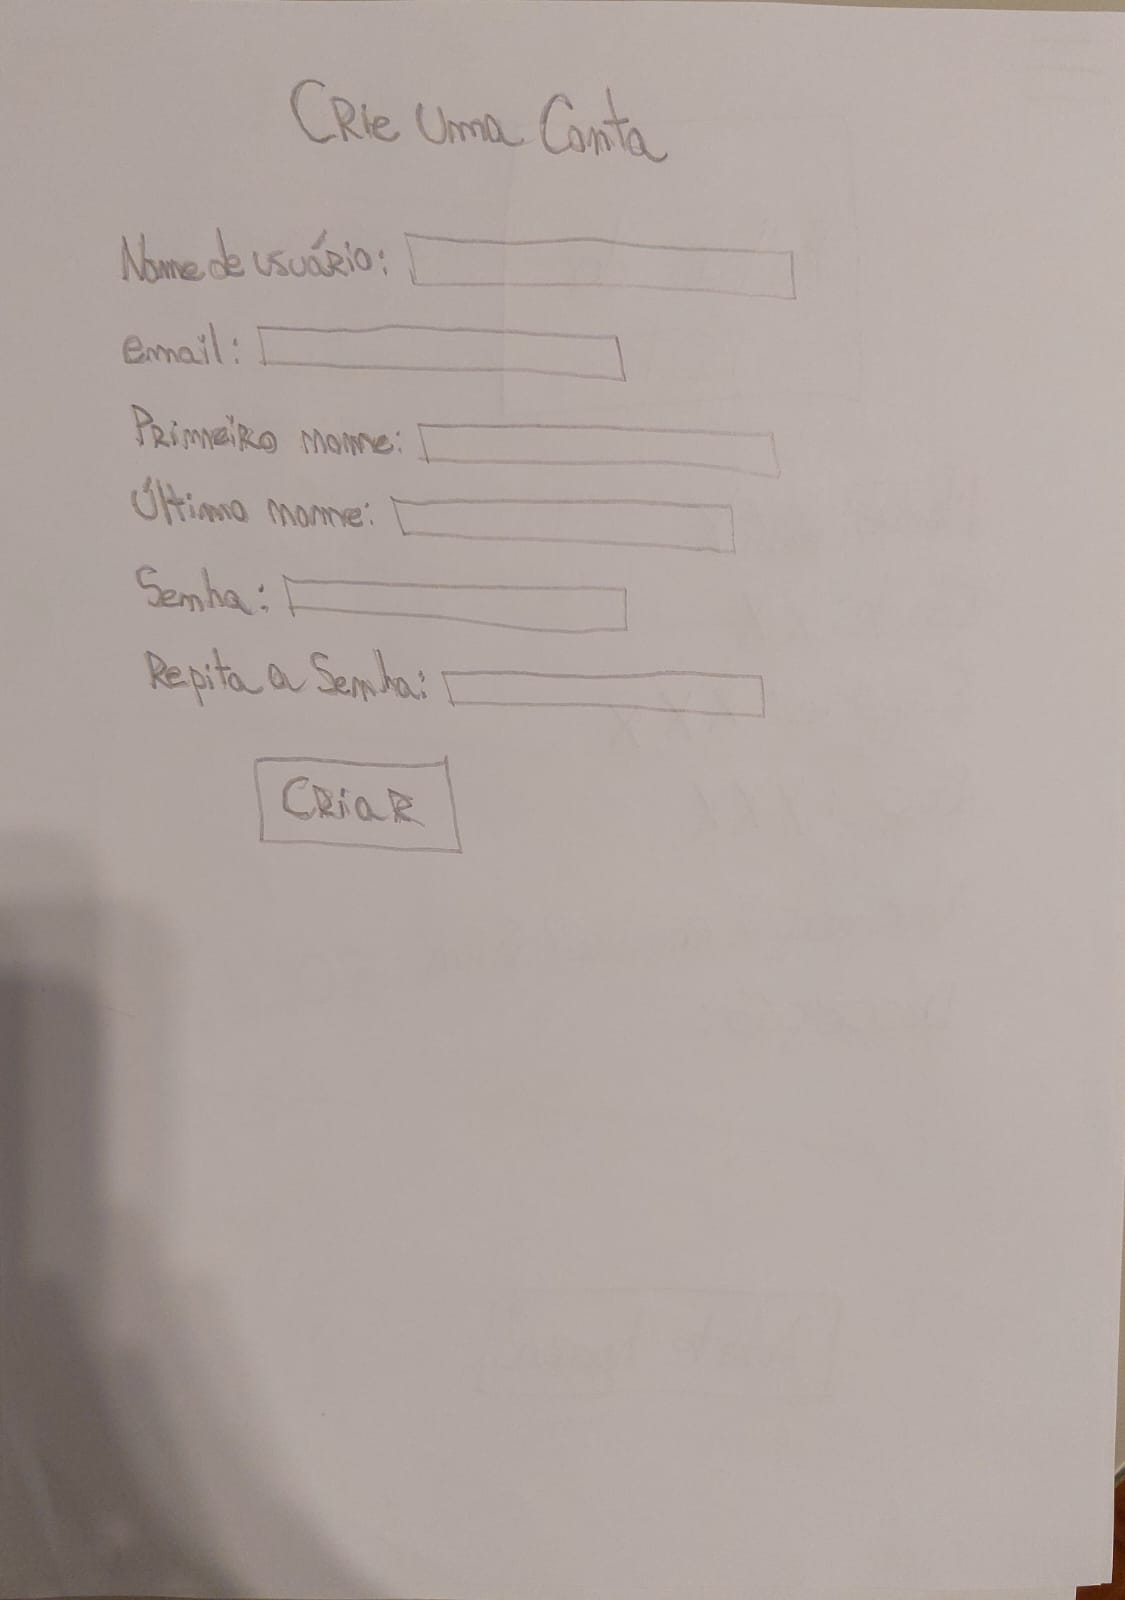 Crie uma Conta
Nome de usuário:
email:
Primeiro nome:
Último nome:
Senha:
Repita a Senha:
Criar